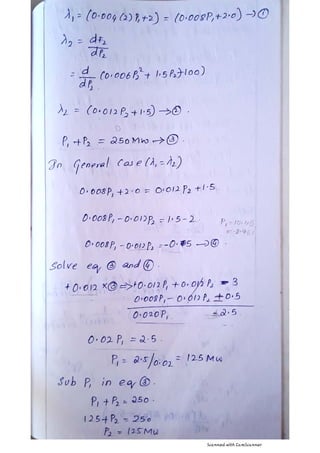 λ₁ = (0.004 (2) P₁+2) = (0.008P₁+2.0) → ①
λ₂ = dF₂/dP₂
= d/dP₂ (0.006P₂² + 1.5P₂+100)
λ₂ = (0.012P₂+1.5) → ②.
P₁ + P₂ = 250 MW → ③.
In General Case (λ₁ = λ₂)
0.008P₁ + 2.0 = 0.012P₂ + 1.5
0.008P₁ - 0.012P₂ = 1.5 - 2
0.008P₁ - 0.012P₂ = -0.5 → ④.
Solve eq ③ and ④.
+0.012 × ③ => +0.012P₁ + 0.012P₂ = 3
0.008P₁ - 0.012P₂ = 0.5
0.020P₁ = 2.5.
0.02 P₁ = 2.5.
P₁ = 2.5/0.02 = 125 MW
Sub P₁ in eq ③.
P₁ + P₂ = 250.
125 + P₂ = 250
P₂ = 125 MW
Scanned with CamScanner